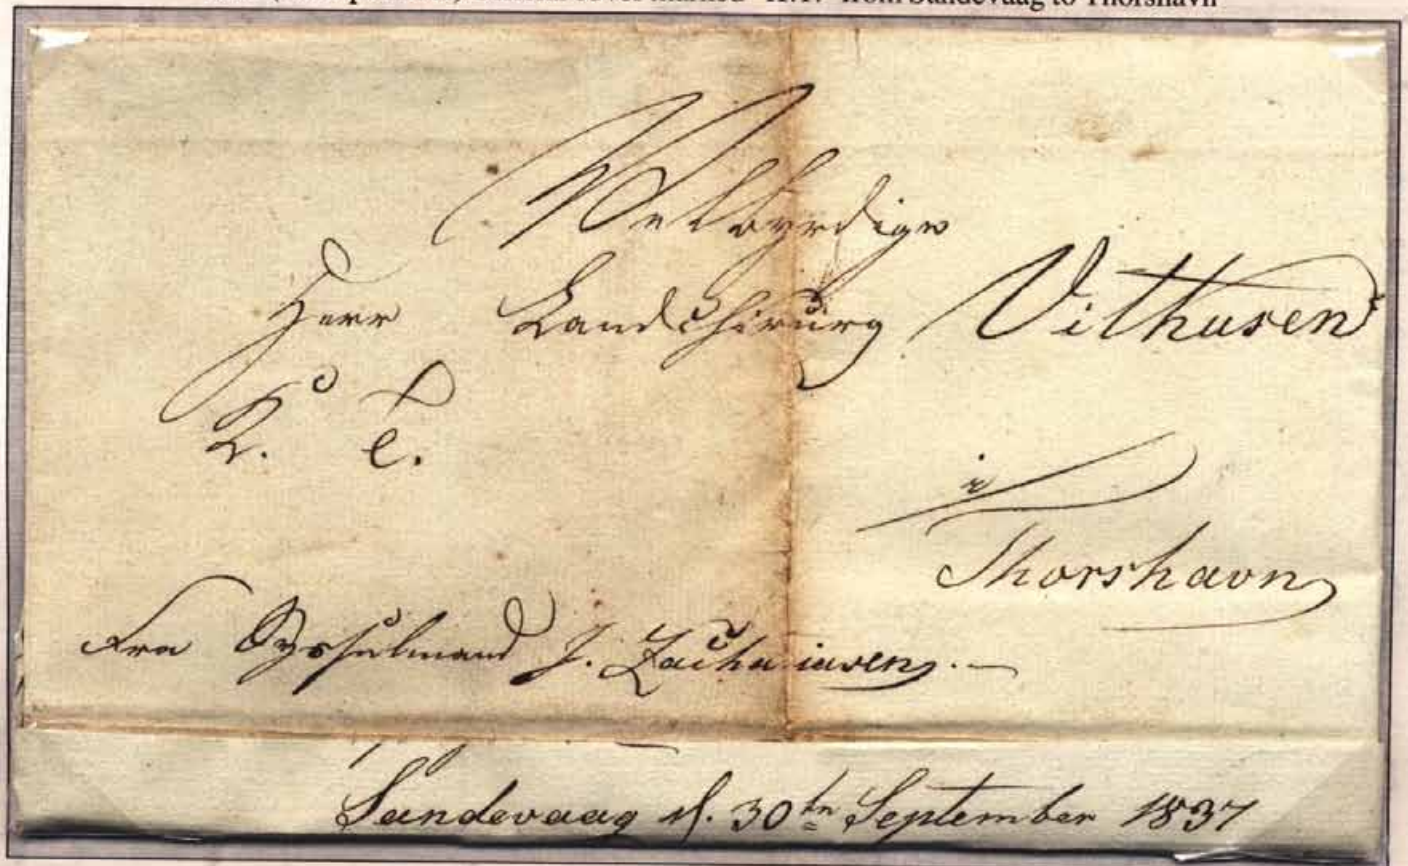 from Sandevaag to Thorshavn
Velbyrdige
Herr Landchirurg Vithusen
K. T.
i
Thorshavn
Fra Sysselmand J. Zachariasen.
Sandevaag d. 30te September 1837